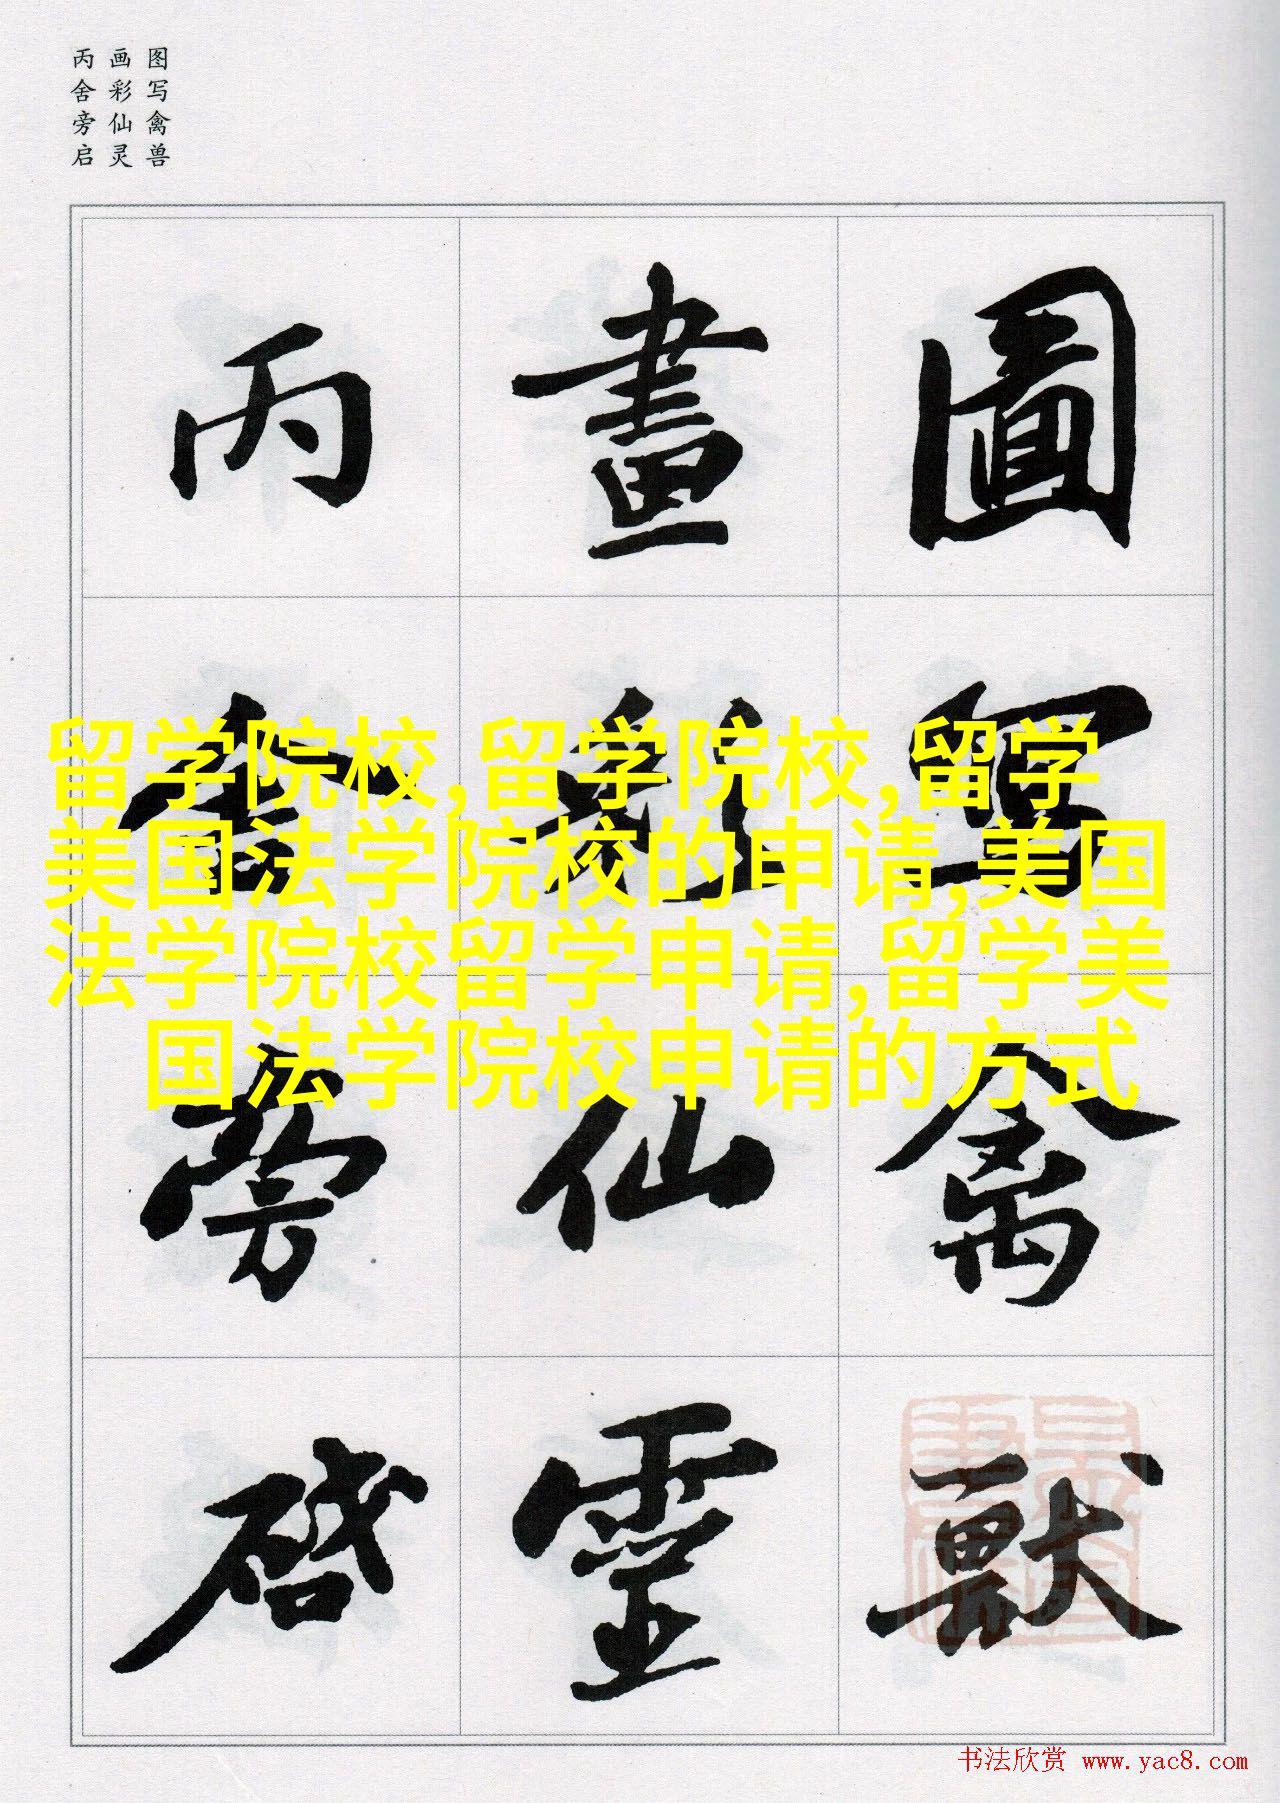 图写禽兽
画彩仙灵
丙舍旁启
圖寫禽獸
畫彩仙靈
丙舍旁啓
留学院校,留学院校,留学
美国法学院校的申请,美国
法学院校留学申请,留学美
国法学院校申请的方式
书法欣赏 www.yac8.com